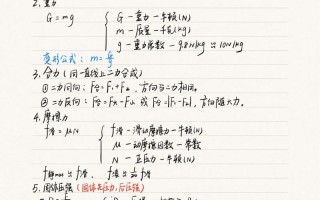 2.重力
G=mg
G-重力-牛顿(N)
m-质量-千克(kg)
g-重力常数-9.8N/kg≈10N/kg
变形公式:m=G/g
3.合力(同一直线上二力合成)
①二力同向:F合=F₁+F₂,方向与二力相同。
②二力反向:F合=F大-F小 或 F合=|F₁-F₂|,方向随大力。
4.摩擦力
f滑=μN
f滑-滑动摩擦力-牛顿(N)
μ-动摩擦因数-常数
N-正压力-牛顿(N)
f静max≈f滑,f滚≈f滑
5.固体压强(固体先压力,后压强)